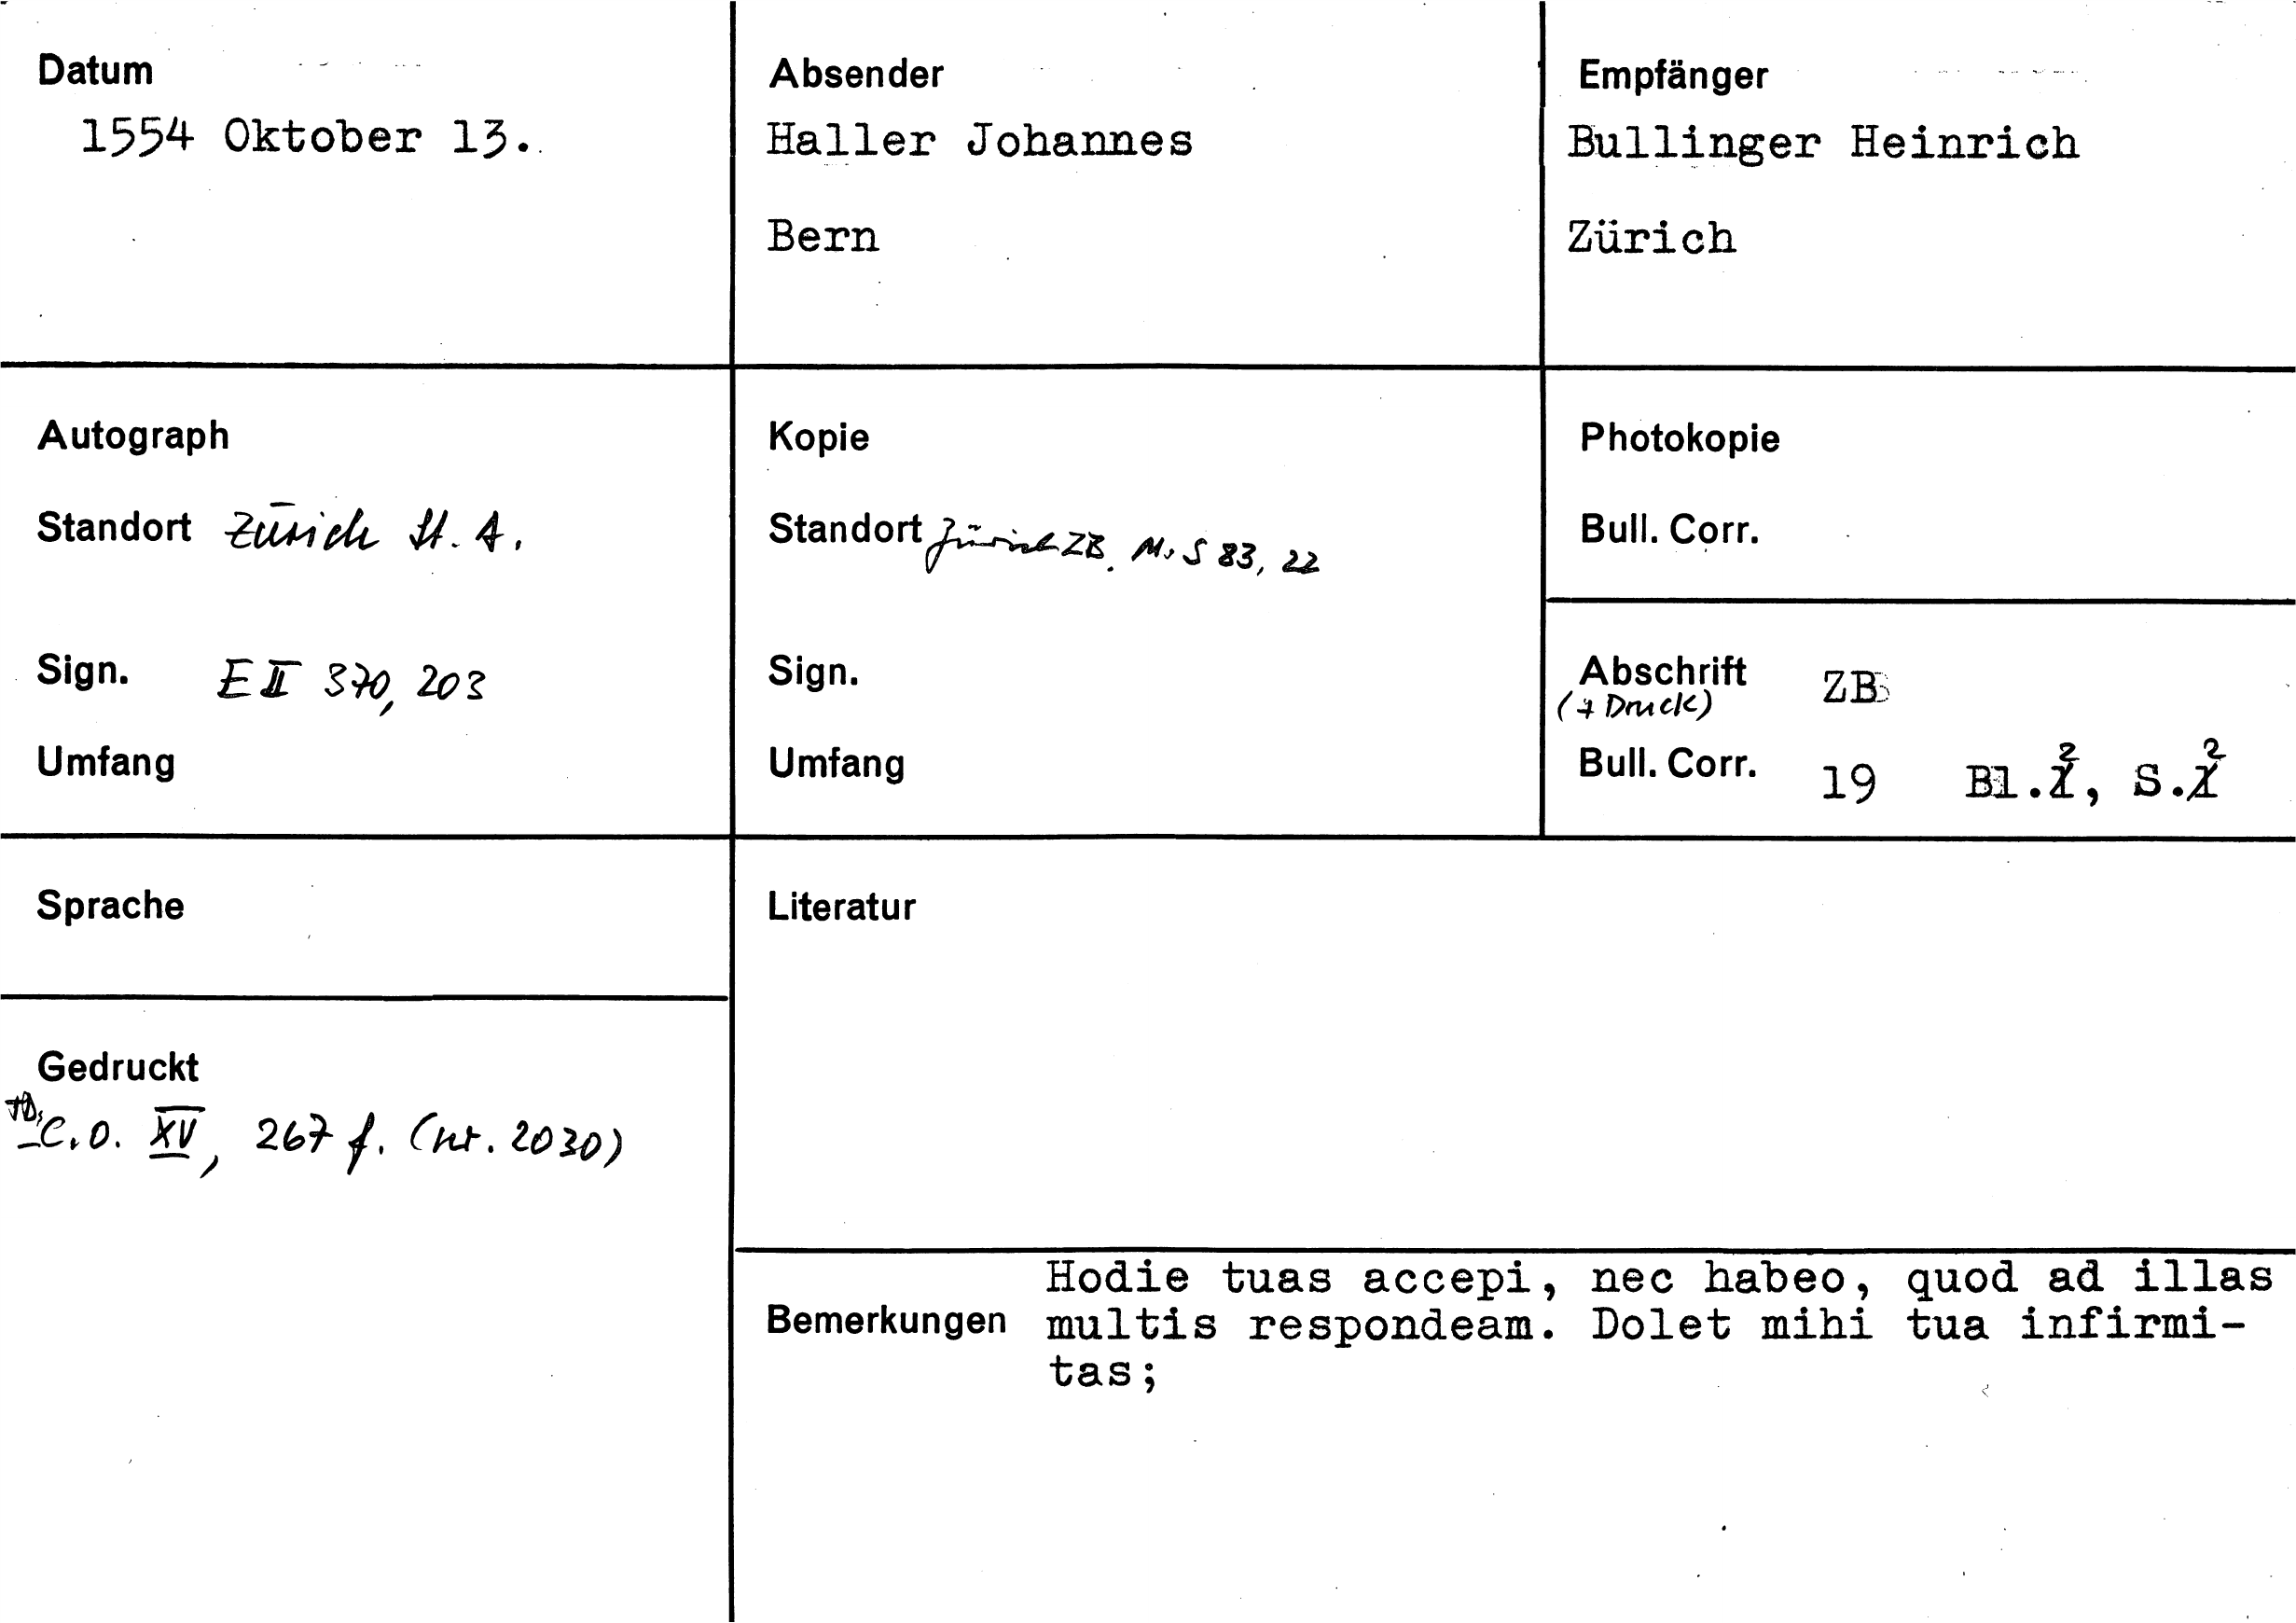 Datum
1554 Oktober 13.
Absender
Haller Johannes
Bern
Empfänger
Bullinger Heinrich
Zürich
Autograph
Standort Zürich St. A.
Sign. E II 370, 203
Umfang
Kopie
Standort Zürich ZB. Ms S 83, 22
Sign.
Umfang
Photokopie
Bull. Corr.
Abschrift ZB
(+ Druck)
Bull. Corr. 19 Bl. 2, S. 2
Sprache
Gedruckt
C.O. XV, 267 f. (nr. 2030)
Literatur
Bemerkungen
Hodie tuas accepi, nec habeo, quod ad illas
multis respondeam. Dolet mihi tua infirmi-
tas;